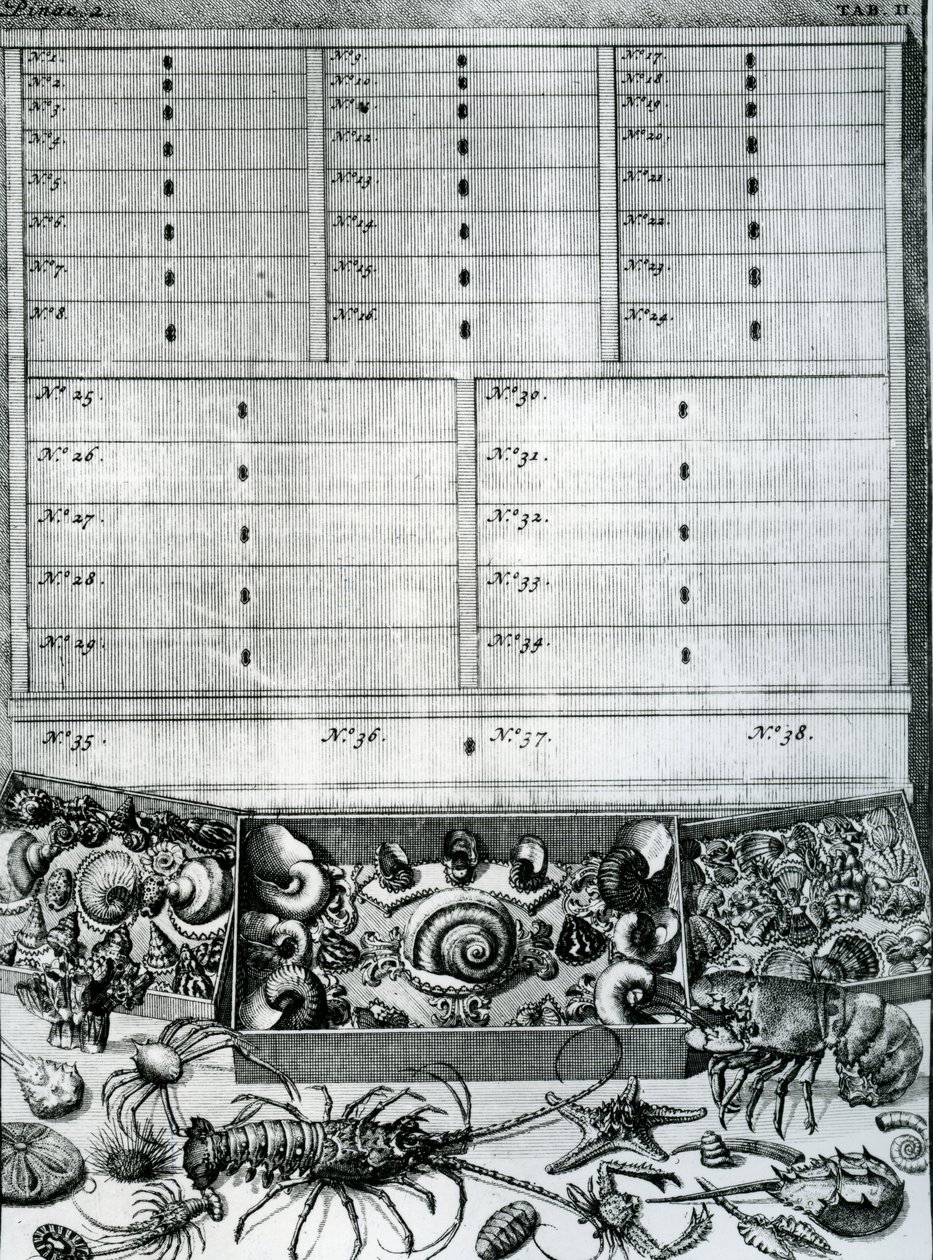 Pinac. 2.
TAB. II
N.º 1.
N.º 2.
N.º 3.
N.º 4.
N.º 5.
N.º 6.
N.º 7.
N.º 8.
N.º 9.
N.º 10.
N.º 12.
N.º 13.
N.º 14.
N.º 15.
N.º 16.
N.º 17.
N.º 18.
N.º 19.
N.º 20.
N.º 21.
N.º 22.
N.º 23.
N.º 24.
N.º 25.
N.º 26.
N.º 27.
N.º 28.
N.º 29.
N.º 30.
N.º 31.
N.º 32.
N.º 33.
N.º 34.
N.º 35.
N.º 36.
N.º 37.
N.º 38.